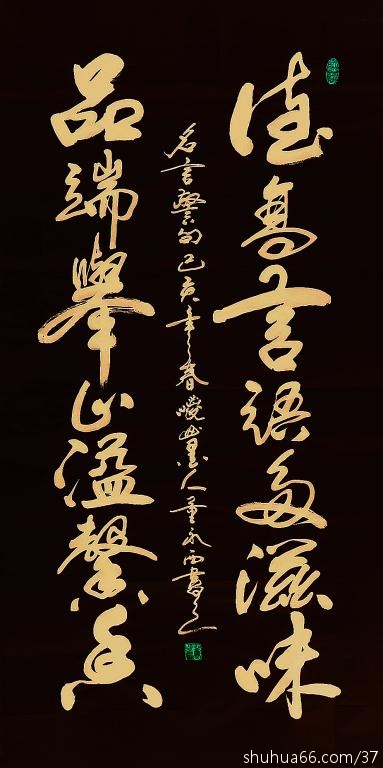 德高言语多滋味
品端举止溢馨香
名言警句己亥年春
人董永西书
shuhua66.com/37